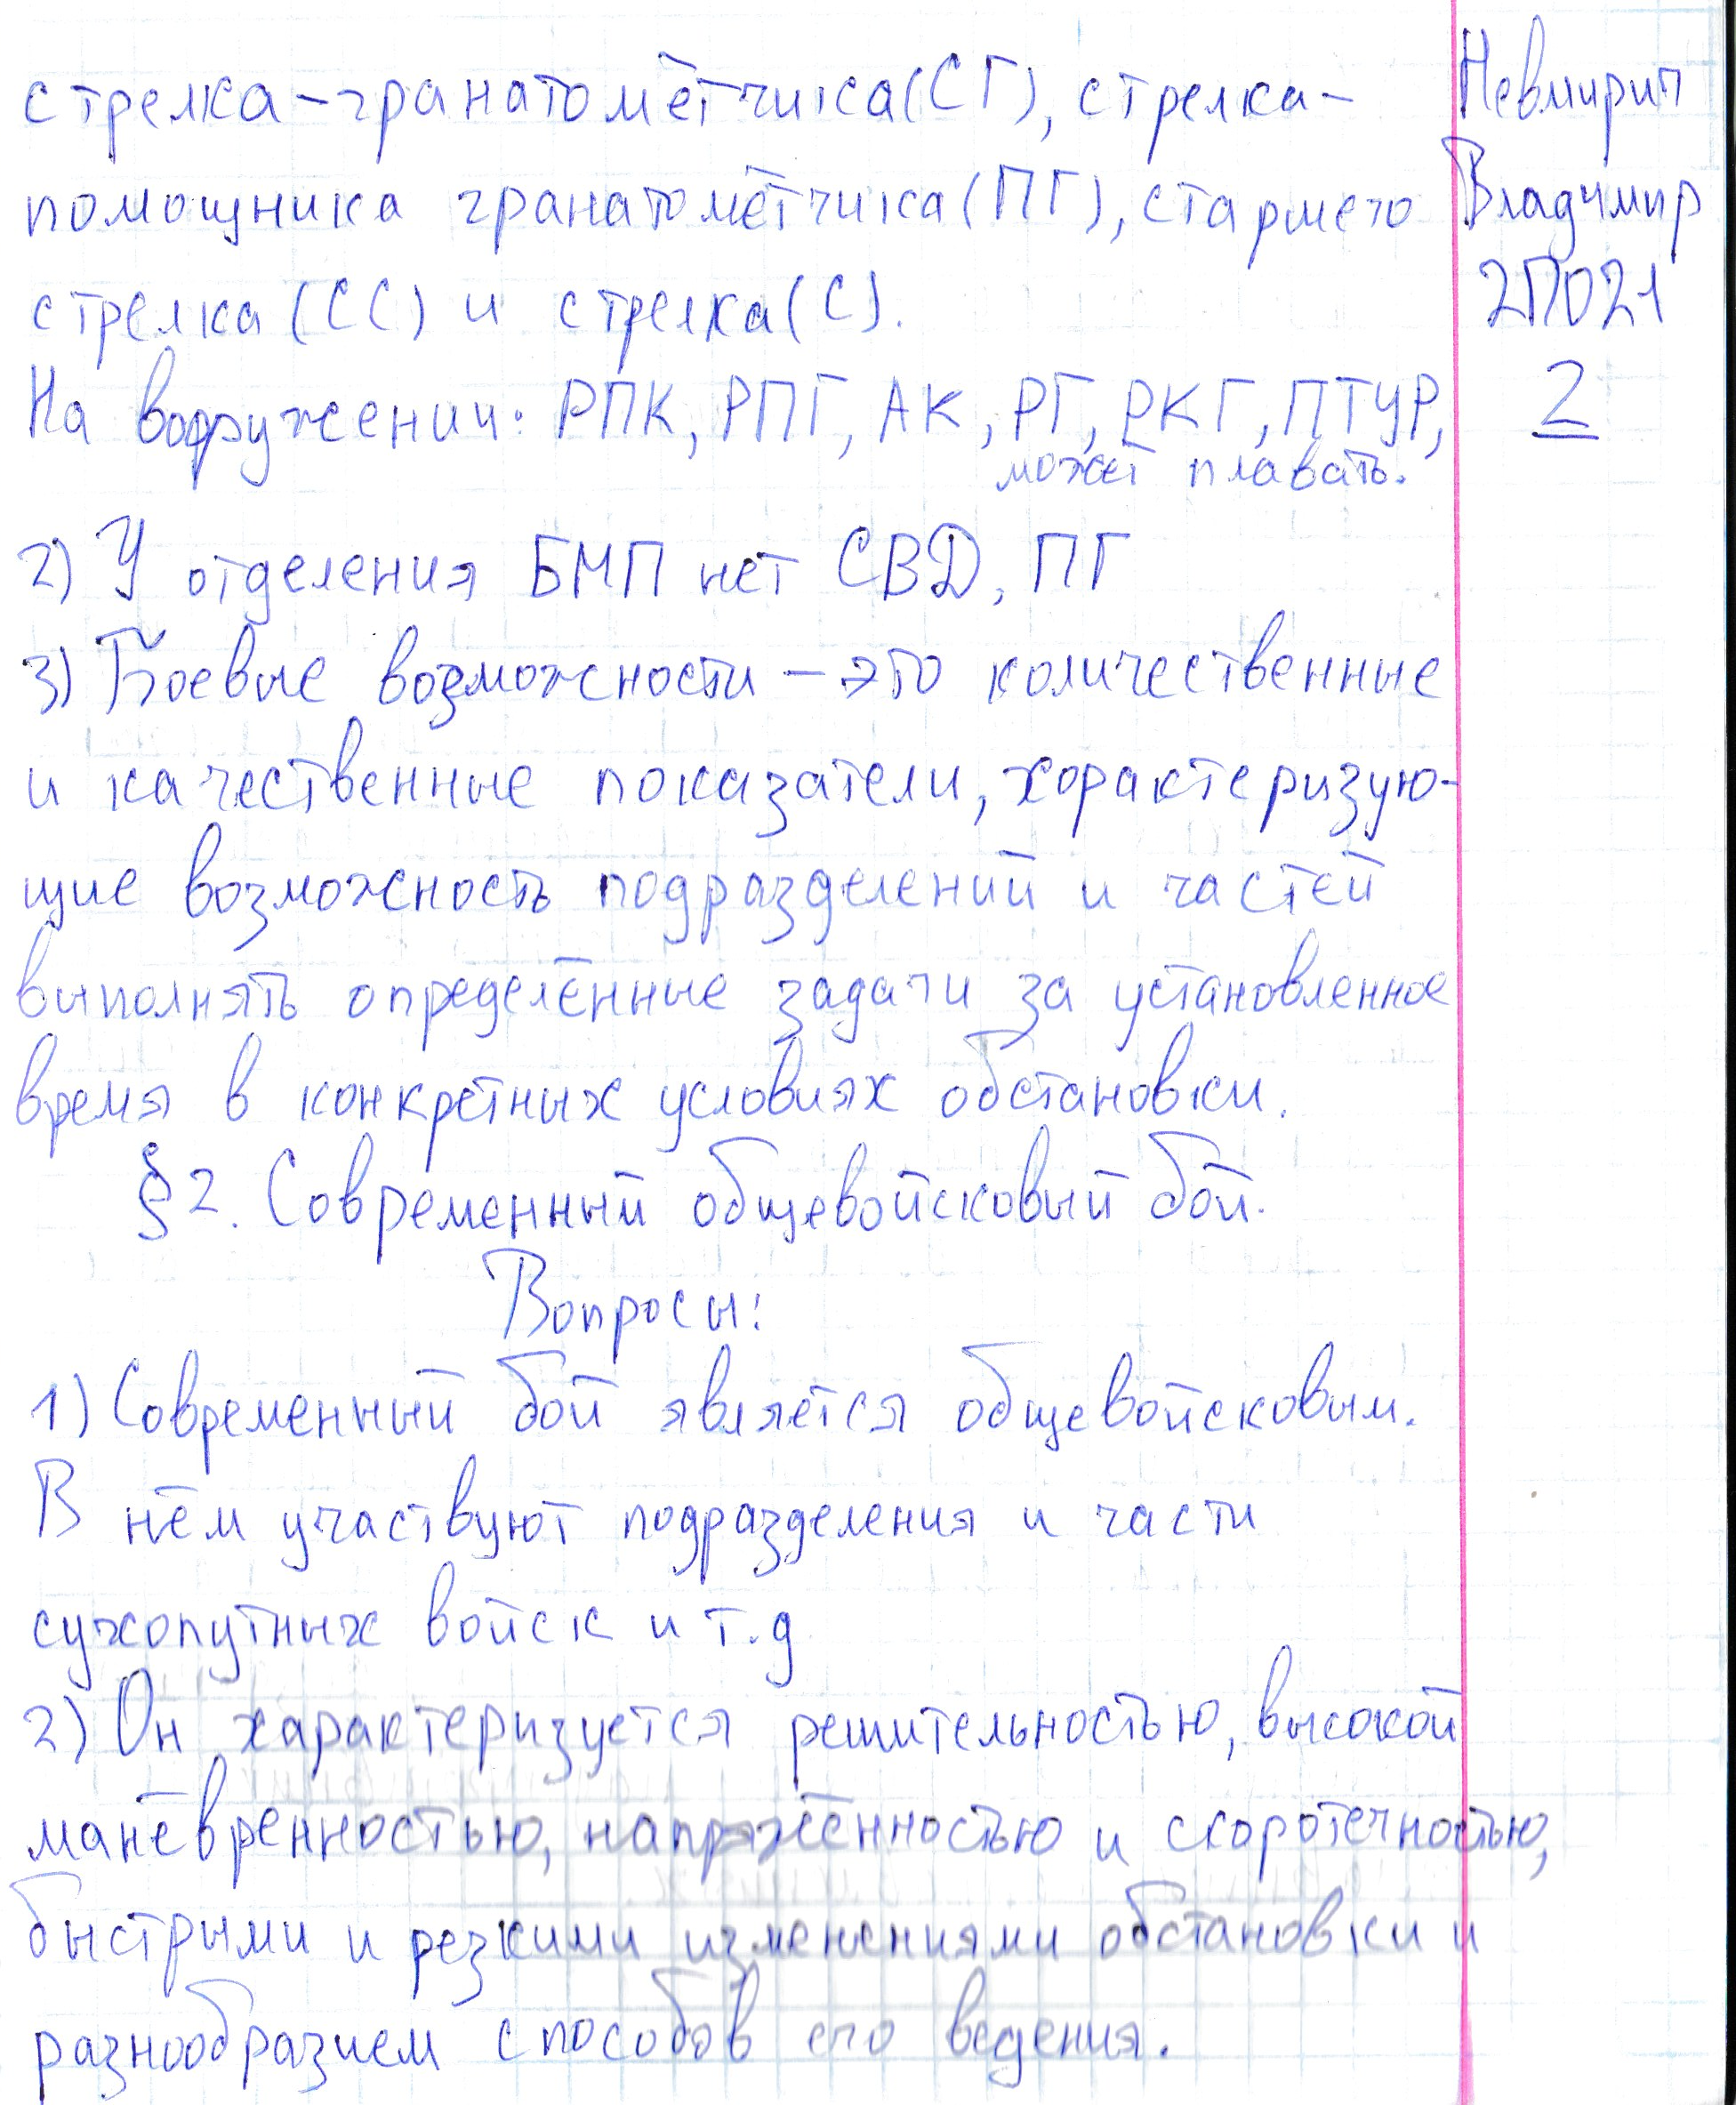 стрелка-гранатомётчика(СГ), стрелка-
помощника гранатомётчика(ПГ), старшего
стрелка(СС) и стрелка(С).
На вооружении: РПК, РПГ, АК, РГ, РКГ, ПТУР,
может плавать.
2) У отделения БМП нет СВД, ПГ
3) Боевые возможности – это количественные
и качественные показатели, хорактеризую-
щие возможность подразделений и частей
выполнять определённые задачи за установленное
время в конкретных условиях обстановки.
§2. Современный общевойсковый бой.
Вопросы:
1) Современный бой является общевойсковым.
В нём участвуют подразделения и части
сухопутных войск и т.д
2) Он характеризуется решительностью, высокой
манёвренностью, напряжённостью и скоротечностью,
быстрыми и резкими изменениями обстановки и
разнообразием способов его ведения.
Владимир
2П021
2